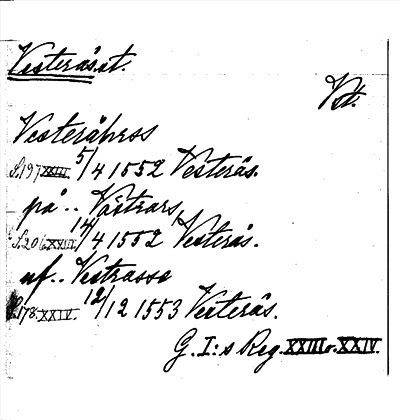 Vesterås st.
Vst.
Vesteråhrss
S. 197 XXIII. 5/4 1552 Vesterås.
på .. Västrars,
S. 206 XXIII. 14/4 1552 Vesterås.
af .. Vestrasse
S. 178. XXIV. 12/12 1553 Vesterås.
G. I:s Reg. XXIII o. XXIV.